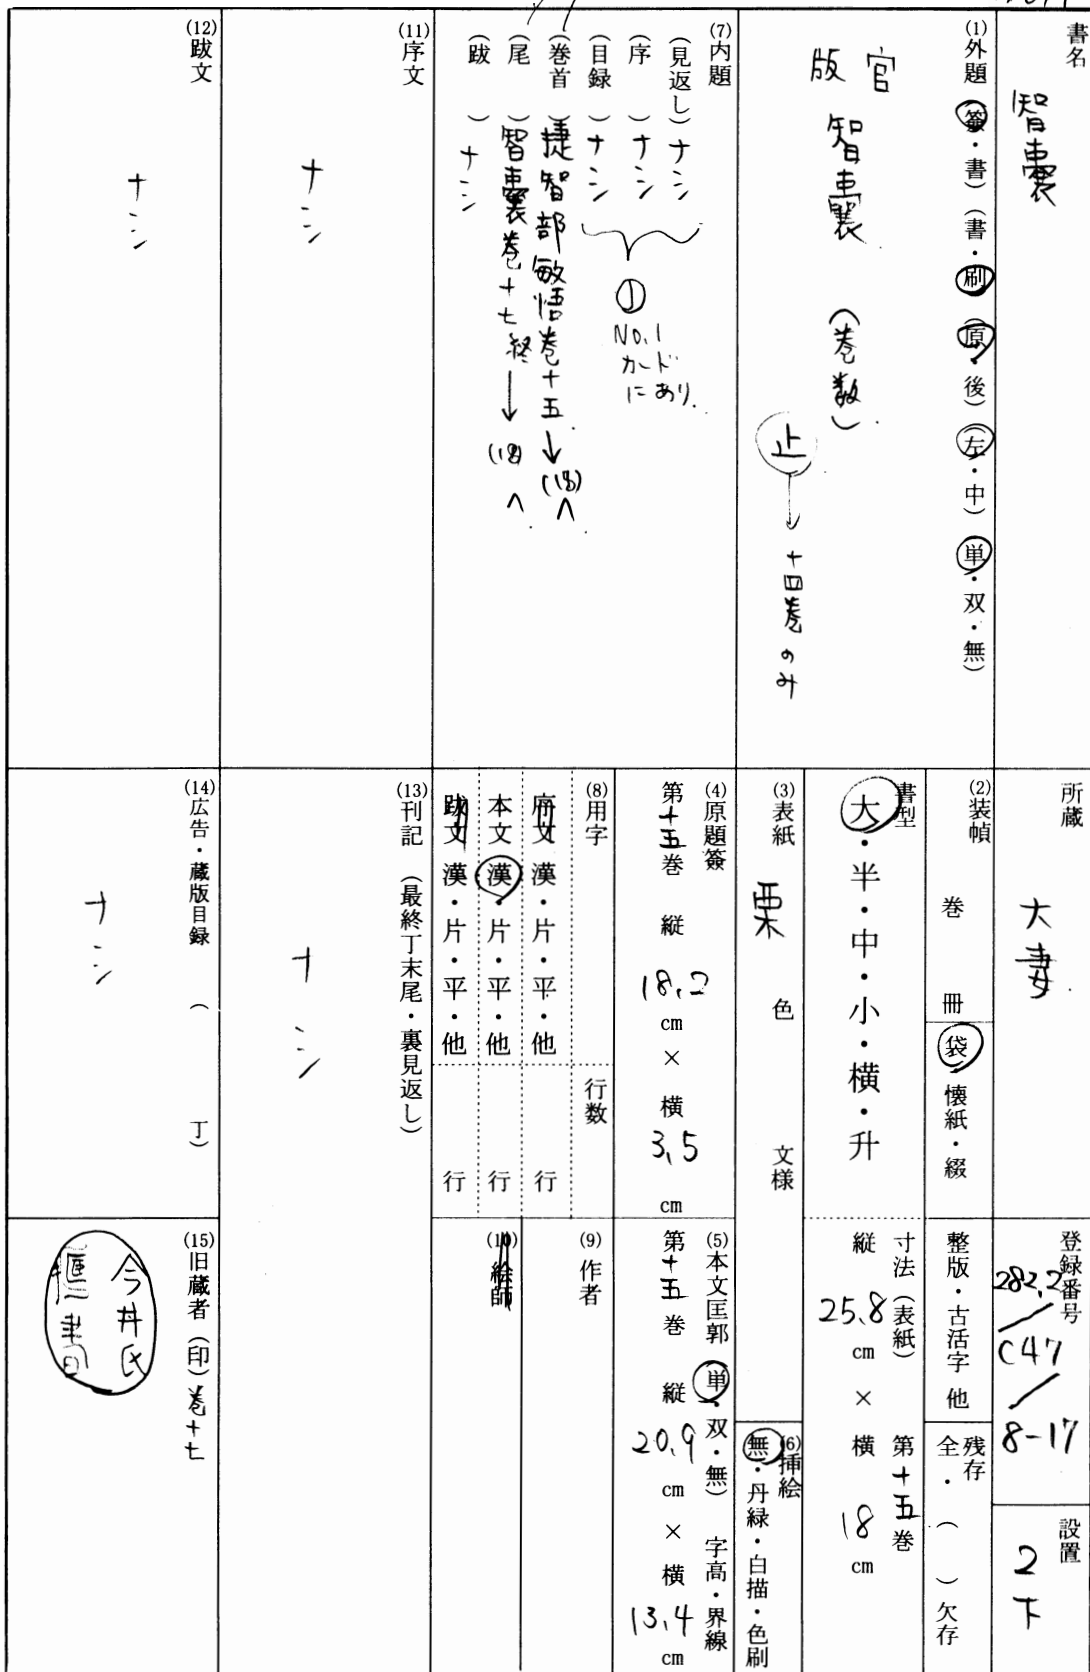 書名
智囊
(1)外題 (簽・書) (書・刷) (原・後) (左・中) (単・双・無)
官
版
智囊 (巻数)
止→十四巻のみ
(7)内題
(見返し)ナシ
(序 )ナシ
(目録 )ナシ
①
No.1
カード
にあり.
(巻首 )捷智部敏悟巻十五→(18)へ
(尾 )智囊巻十七終→(18)へ
(跋 )ナシ
(11)序文
ナシ
(12)跋文
ナシ
所蔵
大妻
(2)装幀
巻 冊
袋・懐紙・綴
書型
大・半・中・小・横・升
(3)表紙
栗 色 文様
(4)原題簽
第十五巻 縦 18,2 cm × 横 3,5 cm
(8)用字 行数
序文 漢・片・平・他 行
本文 漢・片・平・他 行
跋文 漢・片・平・他 行
(13)刊記 (最終丁末尾・裏見返し)
ナシ
(14)広告・蔵版目録 ( 丁)
ナシ
登録番号
282,2
C47
8-17
設置
2下
整版・古活字 他
残存
全・( )欠存
寸法(表紙) 第十五巻
縦 25.8 cm × 横 18 cm
(6)挿絵
無・丹緑・白描・色刷
(5)本文匡郭 (単・双・無) 字高・界線
第十五巻 縦 20,9 cm × 横 13,4 cm
(9)作者
(10)絵師
(15)旧蔵者(印)巻十七
今井氏